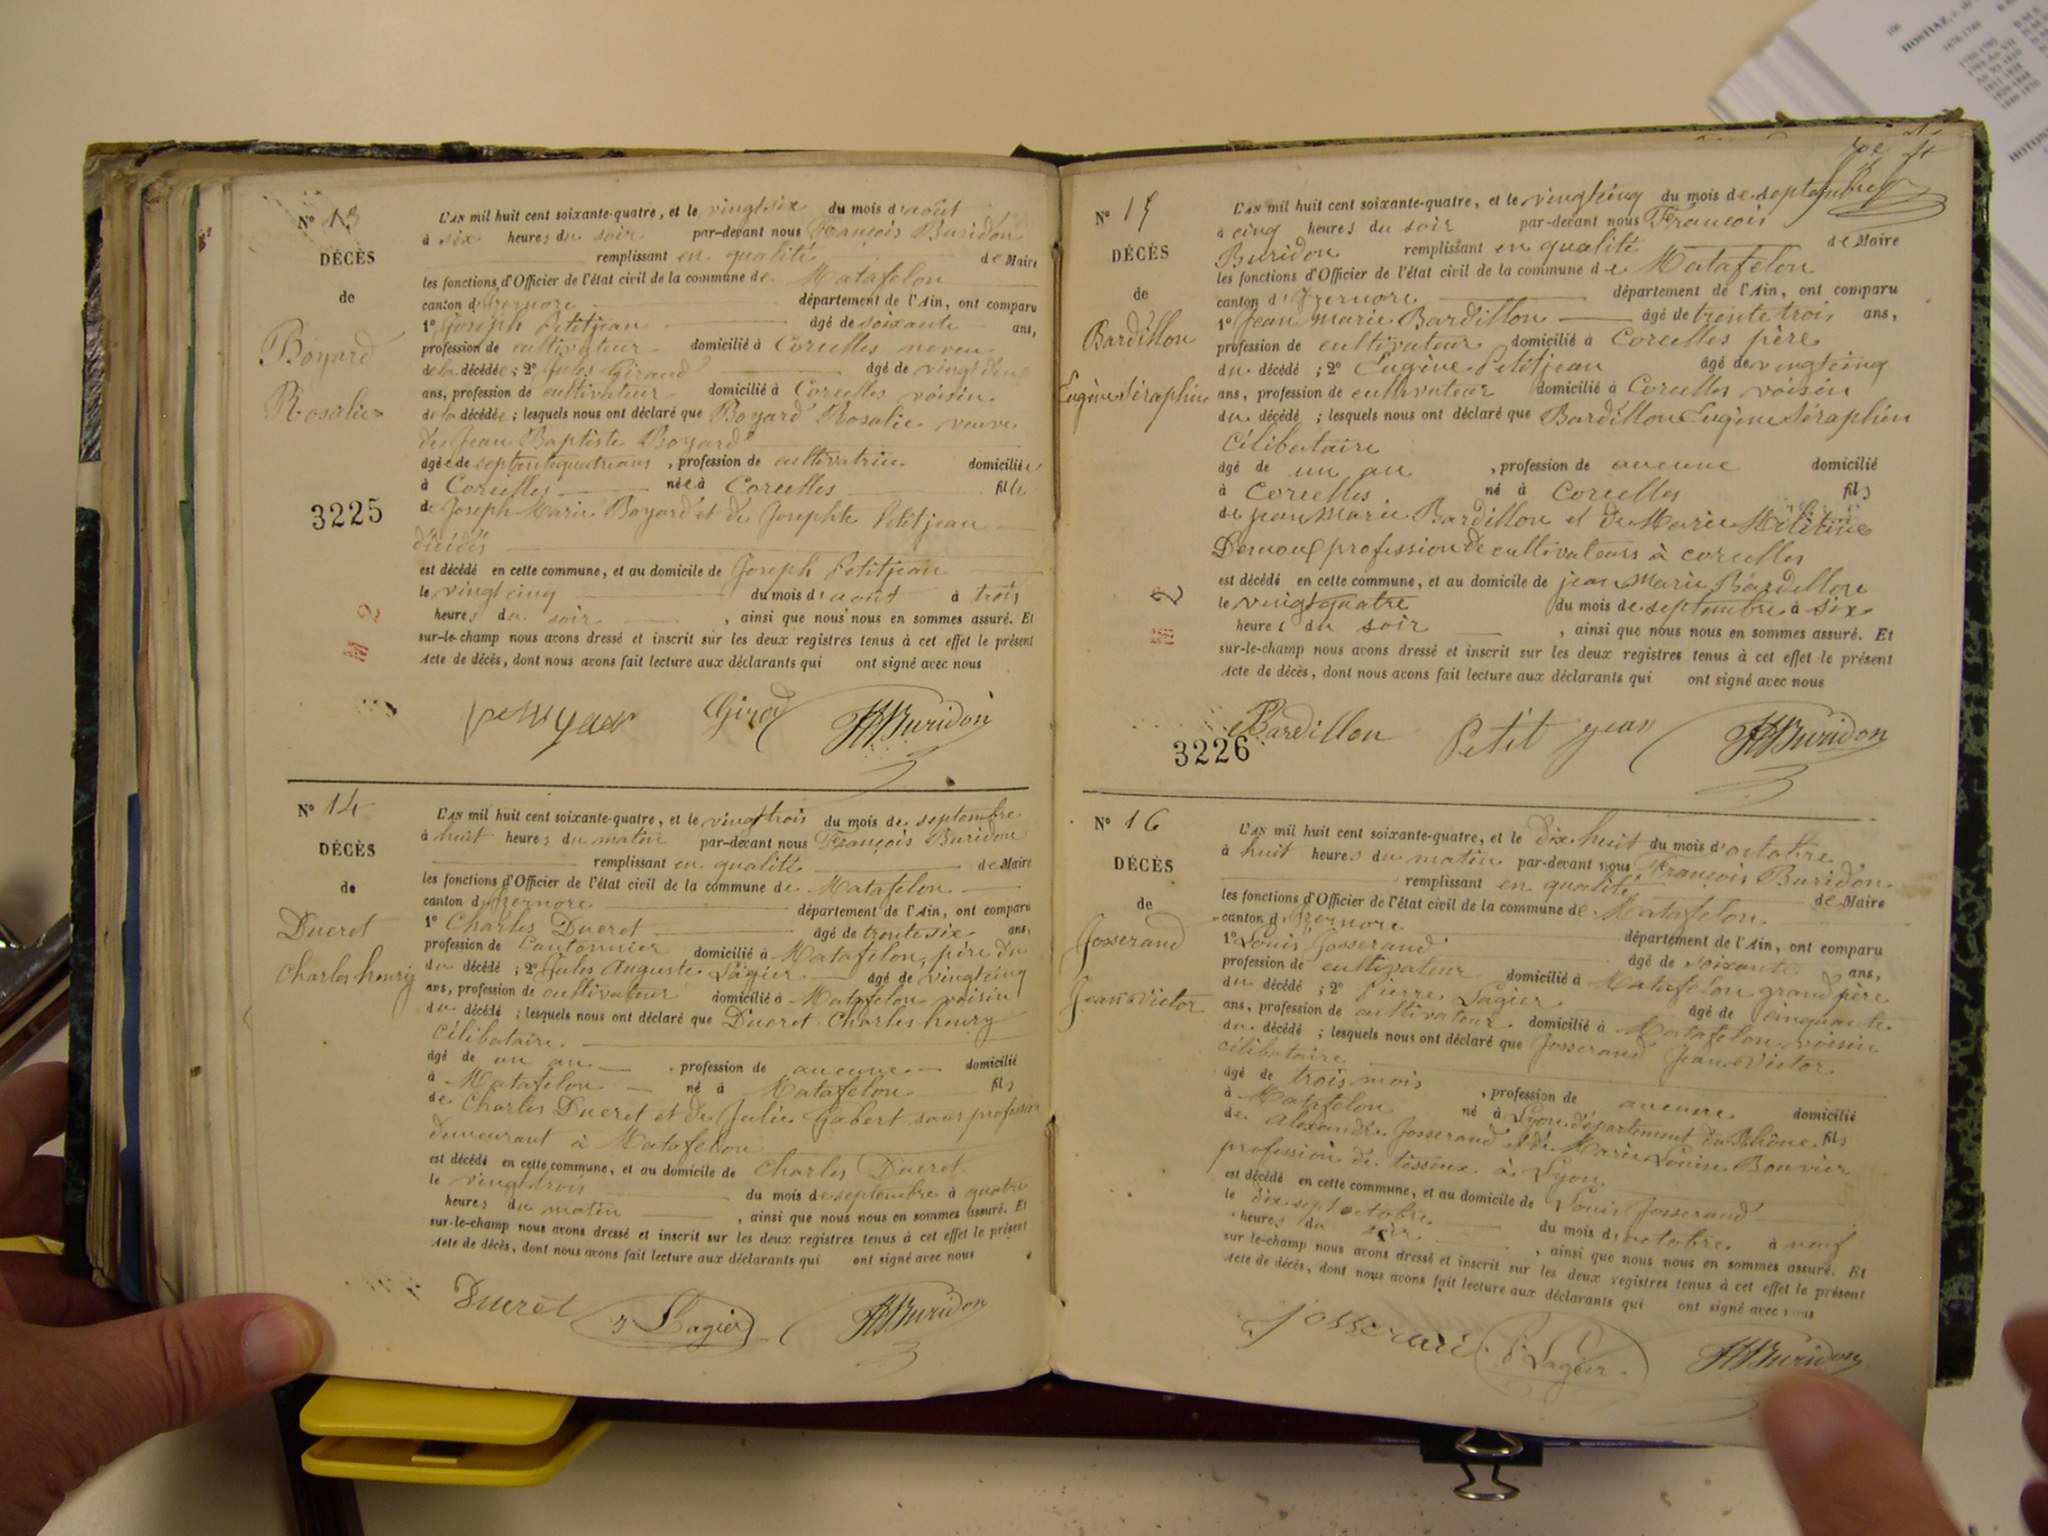 N° 13
DÉCÈS
de
Boyard
Rosalie
3225
L'AN mil huit cent soixante-quatre, et le vingt six du mois d'août
à six heures du soir par-devant nous François Buridon
remplissant en qualité de Maire
les fonctions d'Officier de l'état civil de la commune de Matafelon
canton d'Izernore département de l'Ain, ont comparu
1° Joseph Petitjean âgé de soixante ans,
profession de cultivateur domicilié à Corcelles neveu
de la décédée ; 2° Jules Giraud âgé de vingt deux
ans, profession de cultivateur domicilié à Corcelles voisin
de la décédée ; lesquels nous ont déclaré que Boyard Rosalie veuve
de Jean Baptiste Boyard
âgée de septantequatre ans, profession de cultivatrice domiciliée
à Corcelles née à Corcelles fille
de Joseph Marie Boyard et de Josephte Petitjean
décédés
est décédé en cette commune, et au domicile de Joseph Petitjean
le vingt cinq du mois d'août à trois
heures du soir, ainsi que nous nous en sommes assuré. Et
sur-le-champ nous avons dressé et inscrit sur les deux registres tenus à cet effet le présent
Acte de décès, dont nous avons fait lecture aux déclarants qui ont signé avec nous
Girod Buridon
N° 14
DÉCÈS
de
Ducret
Charles henry
L'AN mil huit cent soixante-quatre, et le vingt trois du mois de septembre
à huit heures du matin par-devant nous François Buridon
remplissant en qualité de Maire
les fonctions d'Officier de l'état civil de la commune de Matafelon
canton d'Izernore département de l'Ain, ont comparu
1° Charles Ducret âgé de trente six ans,
profession de Cantonnier domicilié à Matafelon, père du
du décédé ; 2° Jules Auguste Lagier âgé de vingt cinq
ans, profession de cultivateur domicilié à Matafelon voisin
du décédé ; lesquels nous ont déclaré que Ducret Charles henry
célibataire
âgé de un an, profession de aucune domicilié
à Matafelon né à Matafelon fils
de Charles Ducret et de Julie Gabert sans profession
demeurant à Matafelon
est décédé en cette commune, et au domicile de Charles Ducret
le vingt trois du mois de septembre à quatre
heures du matin, ainsi que nous nous en sommes assuré. Et
sur-le-champ nous avons dressé et inscrit sur les deux registres tenus à cet effet le présent
Acte de décès, dont nous avons fait lecture aux déclarants qui ont signé avec nous
Ducret Lagier Buridon
N° 15
DÉCÈS
de
Bardillon
Eugène Séraphin
L'AN mil huit cent soixante-quatre, et le vingt cinq du mois de septembre
à cinq heures du soir par-devant nous François
Buridon remplissant en qualité de Maire
les fonctions d'Officier de l'état civil de la commune de Matafelon
canton d'Izernore département de l'Ain, ont comparu
1° Jean marie Bardillon âgé de trente trois ans,
profession de cultivateur domicilié à Corcelles père
du décédé ; 2° Eugène Petitjean âgé de vingt cinq
ans, profession de cultivateur domicilié à Corcelles voisin
du décédé ; lesquels nous ont déclaré que Bardillon Eugène Séraphin
Célibataire
âgé de un an, profession de aucune domicilié
à Corcelles né à Corcelles fils
de jean Marie Bardillon et de Marie
profession de cultivateurs à corcelles
est décédé en cette commune, et au domicile de jean Marie Bardillon
le vingt quatre du mois de septembre à six
heures du soir, ainsi que nous nous en sommes assuré. Et
sur-le-champ nous avons dressé et inscrit sur les deux registres tenus à cet effet le présent
Acte de décès, dont nous avons fait lecture aux déclarants qui ont signé avec nous
Bardillon Petit jean Buridon
3226
N° 16
DÉCÈS
de
Josserand
Jean Victor
L'AN mil huit cent soixante-quatre, et le dix huit du mois d'octobre
à huit heures du matin par-devant nous François Buridon
remplissant en qualité de Maire
les fonctions d'Officier de l'état civil de la commune de Matafelon
canton d'Izernore département de l'Ain, ont comparu
1° Louis Josserand âgé de soixante ans,
profession de cultivateur domicilié à Matafelon grand père
du décédé ; 2° Pierre Lagier âgé de cinquante
ans, profession de cultivateur domicilié à Matafelon voisin
du décédé ; lesquels nous ont déclaré que Josserand Jean Victor
célibataire
âgé de trois mois, profession de aucune domicilié
à Matafelon né à Lyon département du Rhône fils
de Alexandre Josserand et de Marie Louise Bouvier
profession de tisseux à Lyon
est décédé en cette commune, et au domicile de Louis Josserand
le dix sept octobre du mois d'octobre à neuf
heures du soir, ainsi que nous nous en sommes assuré. Et
sur le champ nous avons dressé et inscrit sur les deux registres tenus à cet effet le présent
Acte de décès, dont nous avons fait lecture aux déclarants qui ont signé avec nous
P Lagier Buridon